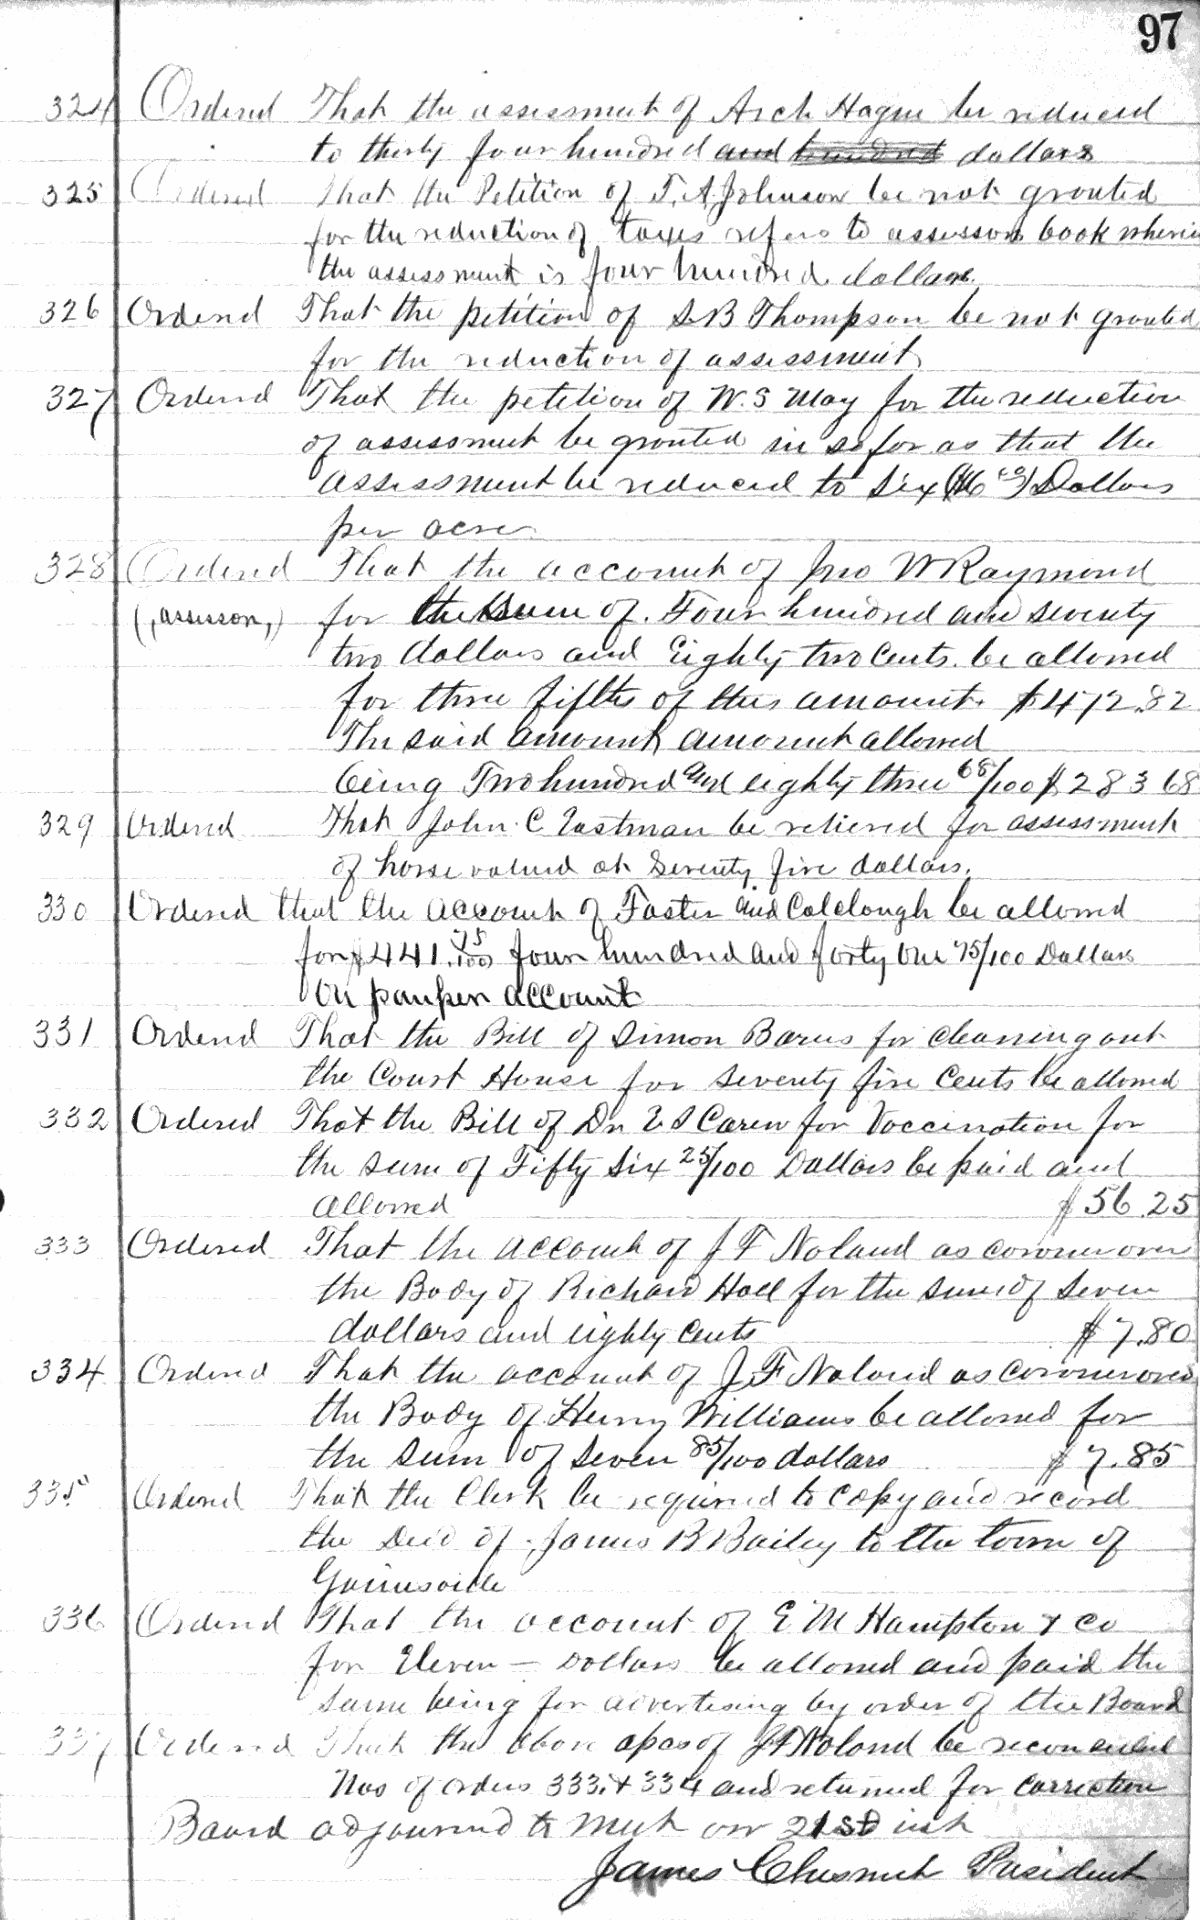 97
324 Ordered That the assessment of Arch Hague be reduced
to thirty four hundred and hundred dollars
325 Ordered That the Petition of T. A Johnson be not granted
for the reduction of taxes refers to assessors book wherein
the assessment is four hundred dollars.
326 Ordered That the petition of S B Thompson be not granted
for the reduction of assessment
327 Ordered That the petition of W. S May for the reduction
of assessment be granted in so far as that the
assessment be reduced to Six ($6 00) Dollars
per acre
328 Ordered That the account of Jno W Raymond
(, assessor,) for the sum of. Four hundred and seventy
two dollars and Eighty two cents. be allowed
for three fifths of this amount. $472.82
The said amount amount allowed
being Two hundred and eighty three 68/100 $283 68
329 Ordered That John C Eastman be relieved for assessment
of horse valued at Seventy five dollars.
330 Ordered that the account of Foster and Colclough be allowed
for $441. 75/100 four hundred and forty one 75/100 Dollars
on pauper account
331 Ordered That the Bill of Simon Barus for cleaning out
the Court House for seventy five Cents be allowed
332 Ordered That the Bill of Dr Carew for Vaccination for
the sum of Fifty Six 25/100 Dollars be paid and
allowed $56.25
333 Ordered That the account of J F Noland as coroner over
the Body of Richard Hall for the sum of Seven
dollars and eighty cents $7.80
334 Ordered That the account of J. F Noland as Coroner over
the Body of Henry Williams be allowed for
the sum of Seven 85/100 dollars $7.85
335 Ordered That the Clerk be required to Copy and record
the Deed of James B Bailey to the town of
Gainesville
336 Ordered That the account of E M Hampton & Co
for Eleven — Dollars be allowed and paid the
same being for advertising by order of the Board
337 Ordered That the above apcs of J F Noland be reconsidered
Nos of orders 333. & 334 and returned for correction
Board adjourned to meet on 21st inst
James Chesnut President